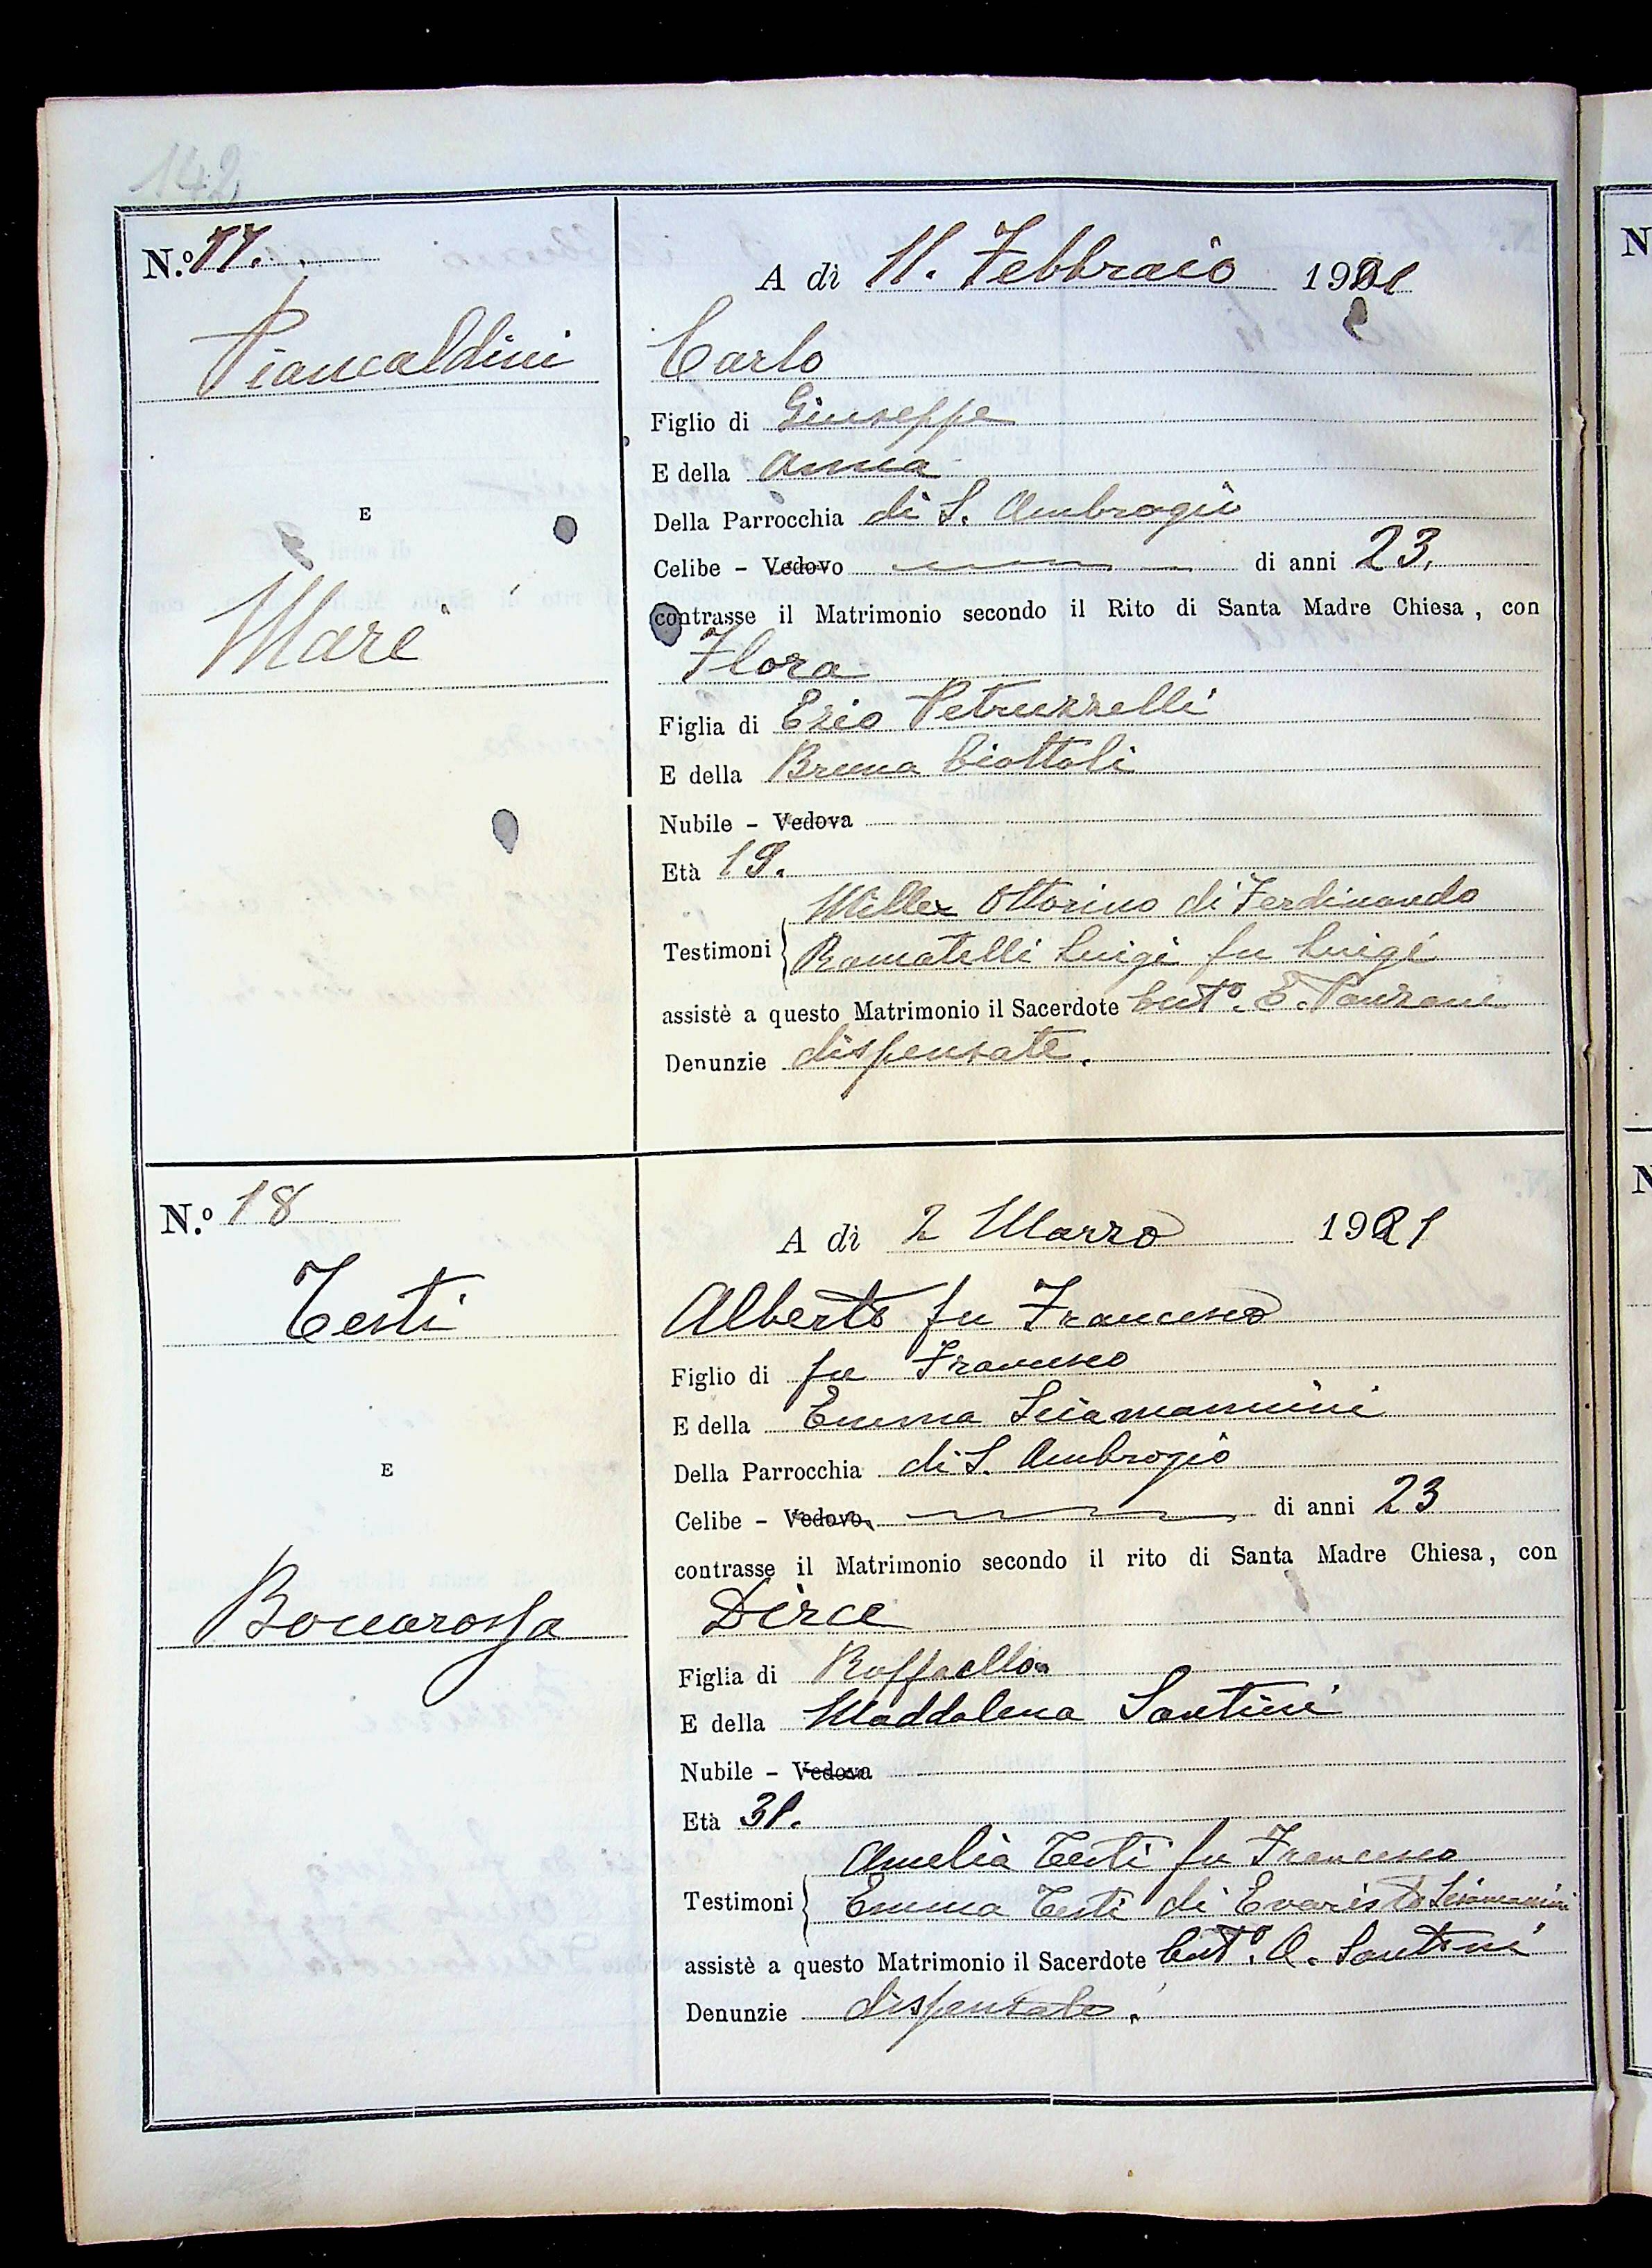 142
N.º 17.
A dì 11. Febbraio 1921
Piancaldini
Carlo
Figlio di Giuseppe
E della Anna
E
Della Parrocchia di S. Ambrogio
Celibe - Vedovo di anni 23.
Mare
contrasse il Matrimonio secondo il Rito di Santa Madre Chiesa, con
Flora
Figlia di Ezio Petruzzelli
E della Bruna Ciottoli
Nubile - Vedova
Età 19.
Miller Ottorino di Ferdinando
Testimoni
Luigi fu Luigi
assistè a questo Matrimonio il Sacerdote Curº. E. Panzani
Denunzie dispensate.
N.º 18
A dì 2 Marzo 1921
Testi
Alberto fu Francesco
Figlio di fu Francesco
E della Emma Sciamannini
E
Della Parrocchia di S. Ambrogio
Celibe - Vedovo di anni 23
contrasse il Matrimonio secondo il rito di Santa Madre Chiesa, con
Boccarossa
Dirce
Figlia di Raffaello
E della Maddalena Santini
Nubile - Vedova
Età 31.
Amelia Testi fu Francesco
Testimoni
Emma Testi di Evaristo Sciamannini
assistè a questo Matrimonio il Sacerdote Curº. Santini
Denunzie dispensate.